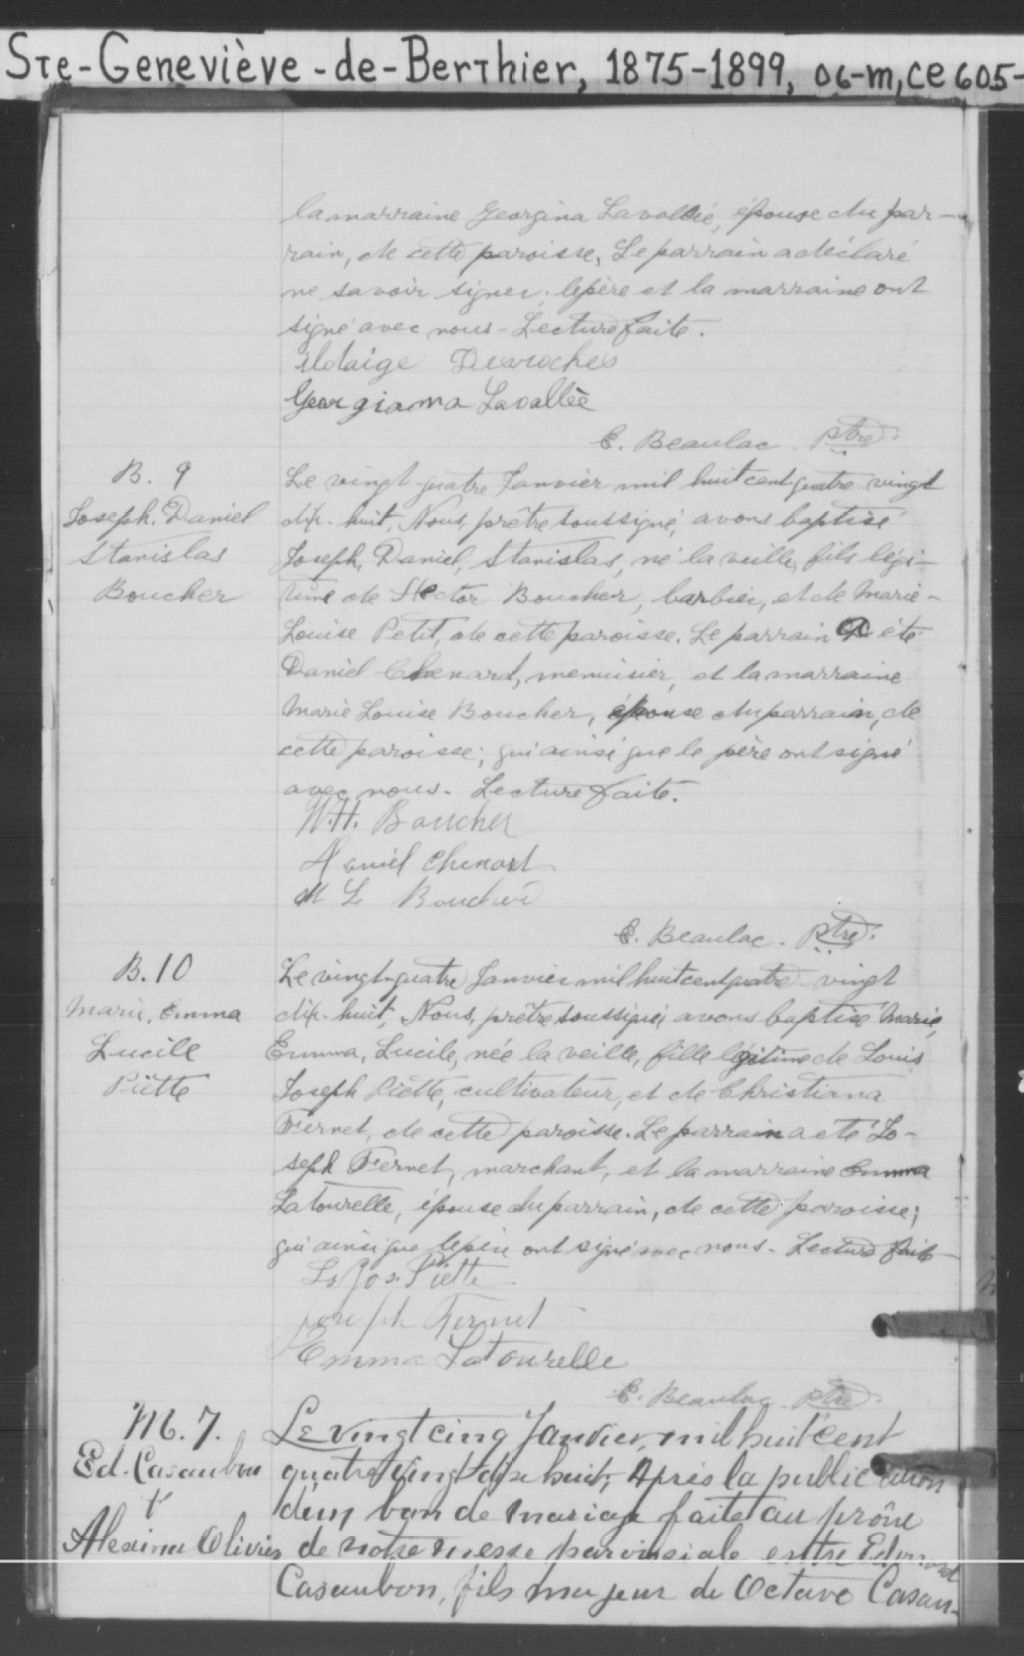 Ste-Geneviève-de-Berthier, 1875-1899, 06-m, ce 605-
la marraine Georgina Lavallée, épouse du par-
rain, de cette paroisse, Le parrain a déclaré
ne savoir signer; le père et la marraine ont
signé avec nous - Lecture faite.
Desroches
Georgiana Lavallée
E. Beaulac ptre
B. 9
Joseph, Daniel
Stanislas
Boucher
Le vingt-quatre Janvier mil huit cent quatre-vingt
dix-huit, Nous, prêtre soussigné, avons baptisé
Joseph, Daniel, Stanislas, né la veille, fils légi-
time de Hector Boucher, barbier, et de Marie-
Louise Petit, de cette paroisse. Le parrain a été
Daniel Chenard, menuisier, et la marraine
Marie Louise Boucher, épouse du parrain, de
cette paroisse; qui ainsi que le père ont signé
avec nous. Lecture faite.
W.H. Boucher
Daniel Chenard
M L Boucher
E. Beaulac. ptre
B. 10
Marie, Emma
Lucille
Piette
Le vingt-quatre Janvier mil huit cent quatre-vingt
dix-huit, Nous, prêtre soussigné, avons baptisé Marie,
Emma, Lucile, née la veille, fille légitime de Louis
Joseph Piètte, cultivateur, et de Christiana
Fernet, de cette paroisse. Le parrain a été Jo-
seph Fernet, marchant, et la marraine Emma
Latourelle, épouse du parrain, de cette paroisse;
qui ainsi que le père ont signé avec nous. Lecture faite
Ls Jos. Piette
Joseph Fernet
Emma Latourelle
E. Beaulac ptre
M. 7.
Ed. Casaubon
&
Alexina Olivier
Le vingt cinq Janvier, mil huit cent
quatre vingt dix huit, Après la publication
d'un ban de mariage faite au prône
de notre messe paroissiale entre Edouard
Casaubon, fils majeur de Octave Casau-